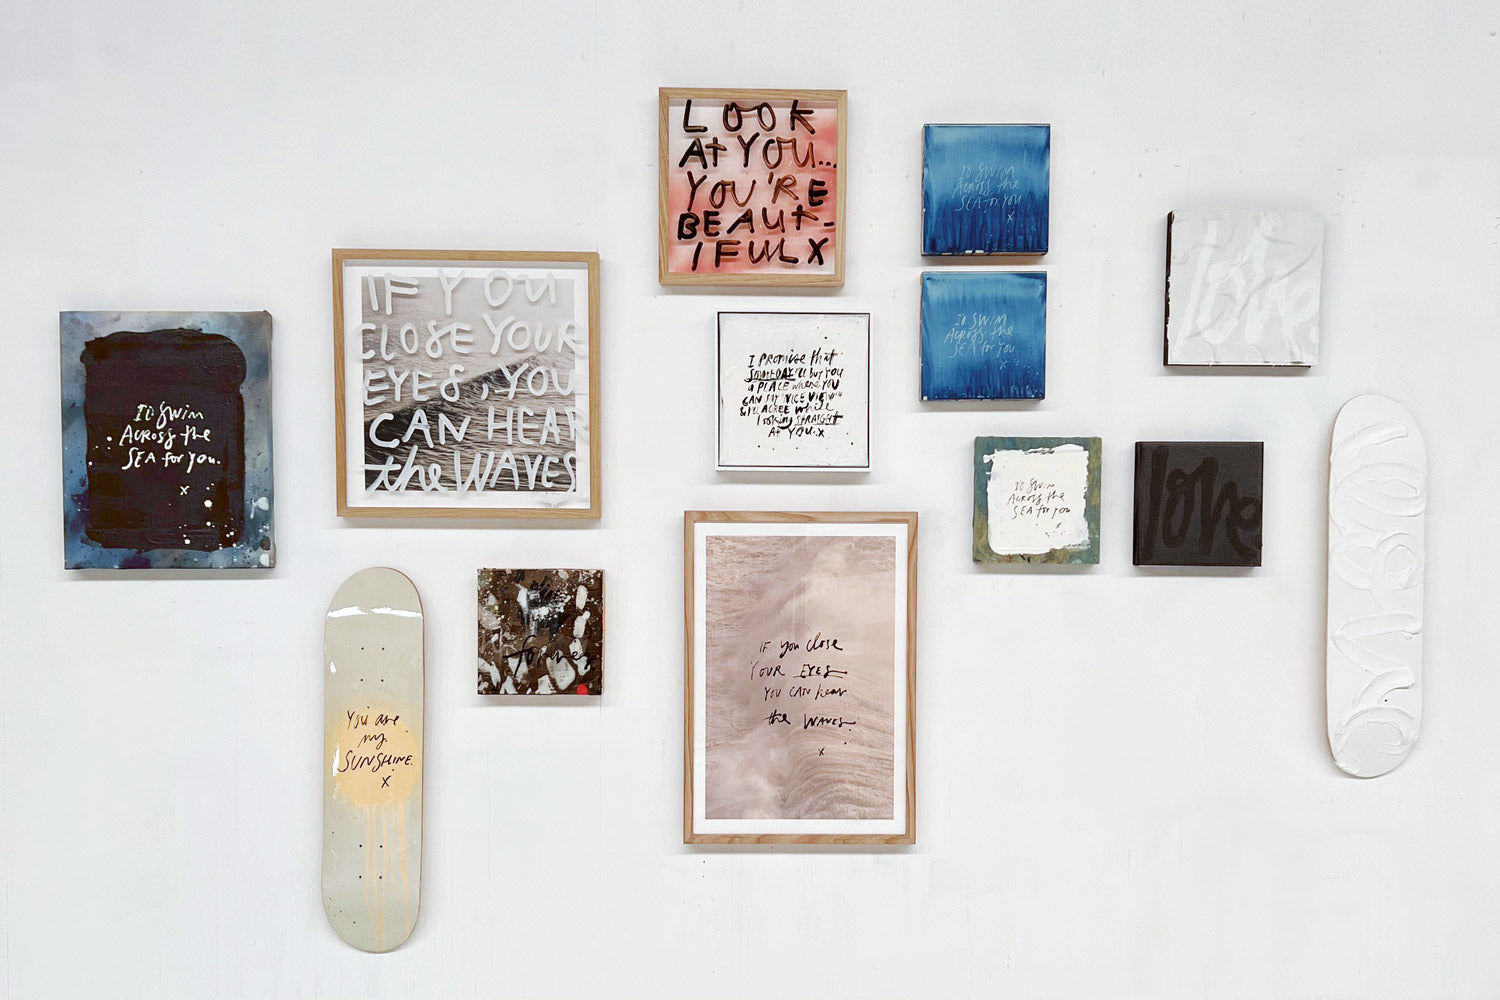 I'd SWIM
ACROSS the
SEA for you.
x
IF YOU
CLOSE YOUR
EYES, YOU
CAN HEAR
the WAVES
LOOK
At YOU...
YOU'RE
BEAUt-
IFUL X
I'd SWIM
ACROSS the
SEA for you
x
I'd SWIM
ACROSS the
SEA for you
x
love
I PROMISE that
SOMEDAY I'll buy you
a PLACE where YOU
CAN SAY 'NICE VIEW'
& I'LL AGREE while
looking STRAIGHT
At YOU.x
I'd SWIM
ACROSS the
SEA for you
x
love
You are
my
SUNSHINE.
x
IF you close
YOUR EYES
YOU CAN hear
the WAVES.
x